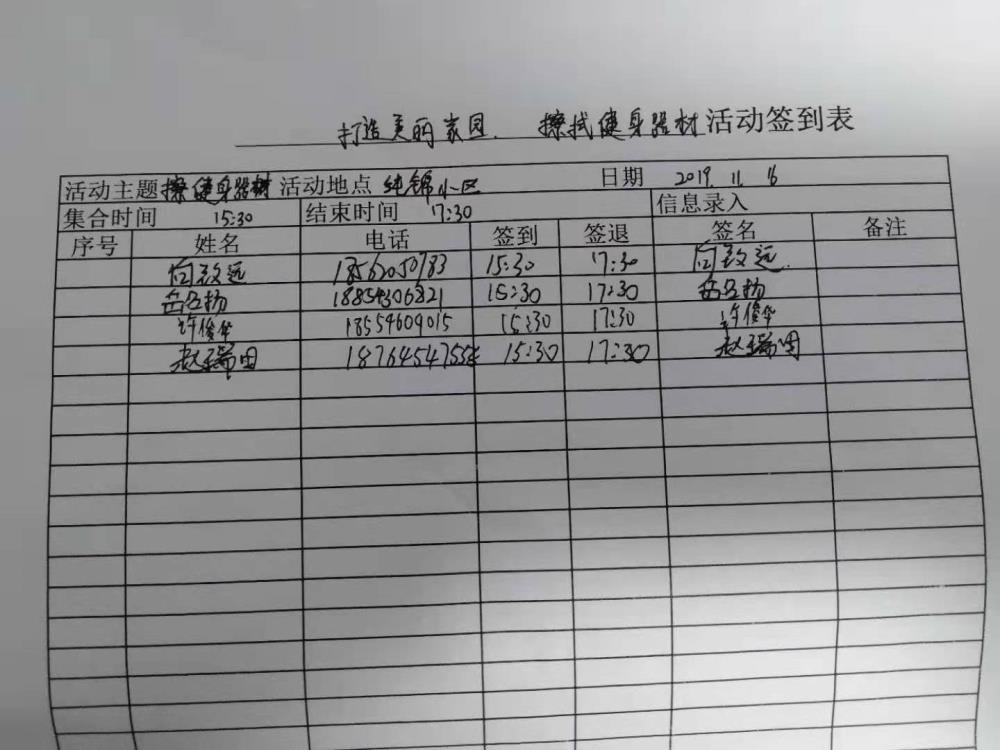 打造美丽家园. 擦拭健身器材活动签到表
活动主题 擦健身器材 活动地点 纯锦小区 日期 2019. 11. 16
集合时间 15:30 结束时间 17:30 信息录入
序号 姓名 电话 签到 签退 签名 备注
向致远 15:30 17:30 向致远
岳名扬 18854306821 15:30 17:30 岳名扬
许俊华 18554609015 15:30 17:30 许俊华
赵瑞田 15:30 17:30 赵瑞田